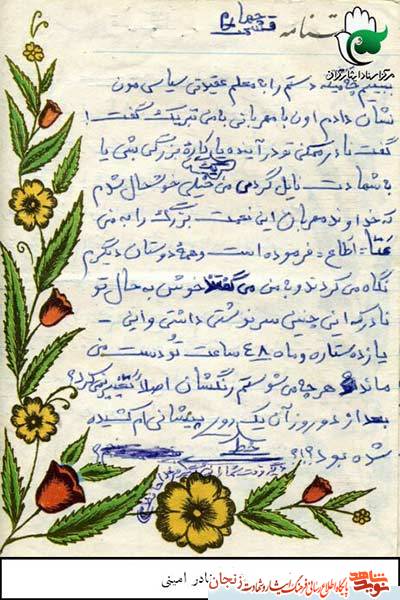 قسمت چهارم
مرکز اسناد ایثارگران
ببینیم چه میشه دستم را به معلم عقیدتی سیاسی مون
نشان دادم اون با مهربانی به من تبریک گفت!
گفت نادر ممکنی تو در آینده یا کارهٔ بزرگی بشی یا
به شهادت نایل گردی من خیلی خوشحال شدم
که خداوند مهربان این نعمت بزرگ را به من
عطاء فرموده است و همهٔ دوستان دیگرم
نگاه می کردند و به من می گفتند خوش به حال تو
نادر که این چنین سرنوشتی داشتی و این
یازده ستاره و ماه ۴۸ ساعت تو دست من
ماند و هر چه می شستم رنگشان اصلاً تغییر نمی کرد؟
بعد از دو روز آن یک روی پیشانی ام کشیده
شده بود؟!؟
خط
نادر امینی
نوید شاهد
پایگاه اطلاع رسانی فرهنگ ایثار و شهادت زنجان